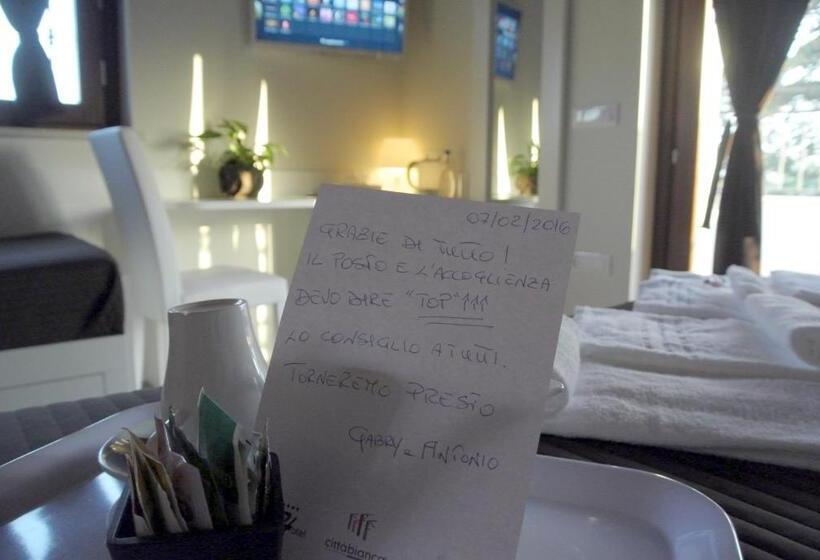 07/02/2016
GRAZIE DI TUTTO!
IL POSTO E L'ACCOGLIENZA
DEVO DIRE "TOP"!!!
LO CONSIGLIO A TUTTI.
TORNEREMO PRESTO
GABRY e ANTONIO
cittàbianca